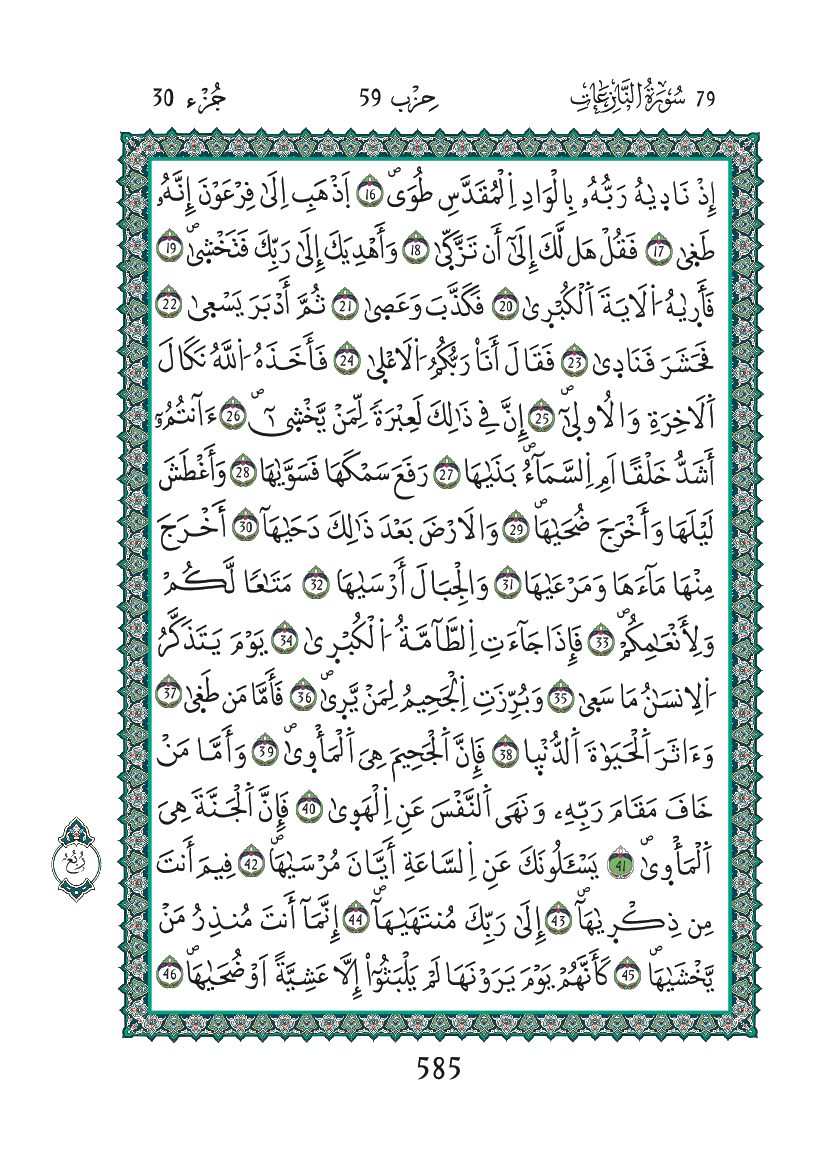 79 سُورَةُ النَّازِعَاتِ حِزْب 59 جُزْء 30
إِذْ نَادِيٰهُ رَبُّهُۥ بِالْوَادِ اِ۬لْمُقَدَّسِ طُوَىۖ 16 اَ۪ذْهَبِ اِلَىٰ فِرْعَوْنَ إِنَّهُۥ
طَغِىٰ 17 فَقُلْ هَل لَّكَ إِلَىٰٓ أَن تَزَّكِّىٰ 18 وَأَهْدِيَكَ إِلَىٰ رَبِّكَ فَتَخْشِىٰۖ 19
فَأَرِيٰهُ اُ۬لَايَةَ اَ۬لْكُبْرِىٰ 20 فَكَذَّبَ وَعَصِىٰ 21 ثُمَّ أَدْبَرَ يَسْعِىٰ 22
فَحَشَرَ فَنَادِىٰ 23 فَقَالَ أَنَا۠ رَبُّكُمُ اُ۬لَاعْلِىٰ 24 فَأَخَذَهُ اُ۬للَّهُ نَكَالَ
اَ۬لَاخِرَةِ وَالُاولِىٰٓۖ 25 إِنَّ فِے ذَٰلِكَ لَعِبْرَةً لِّمَنْ يَّخْش۪ىٰٓۖ 26 ءَآنتُمُۥٓ
أَشَدُّ خَلْقًا اَمِ اِ۬لسَّمَآءُۖ بَن۪يٰهَا 27 رَفَعَ سَمْكَهَا فَسَوّ۪يٰهَا 28 وَأَغْطَشَ
لَيْلَهَا وَأَخْرَجَ ضُح۪يٰهَاۖ 29 وَالَارْضَ بَعْدَ ذَٰلِكَ دَح۪يٰهَآ 30 أَخْرَجَ
مِنْهَا مَآءَهَا وَمَرْع۪يٰهَا 31 وَالْجِبَالَ أَرْس۪يٰهَا 32 مَتَٰعًا لَّكُمْ
وَلِأَنْعَٰمِكُمْۖ 33 فَإِذَا جَآءَتِ اِ۬لطَّآمَّةُ اُ۬لْكُبْر۪ىٰ 34 يَوْمَ يَتَذَكَّرُ
اُ۬لِانسَٰنُ مَا سَع۪ىٰ 35 وَبُرِّزَتِ اِ۬لْجَحِيمُ لِمَنْ يَّر۪ىٰۖ 36 فَأَمَّا مَن طَغ۪ىٰ 37
وَءَاثَرَ اَ۬لْحَيَوٰةَ اَ۬لدُّنْي۪ا 38 فَإِنَّ اَ۬لْجَحِيمَ هِىَ اَ۬لْمَأْو۪ىٰۖ 39 وَأَمَّا مَنْ
خَافَ مَقَامَ رَبِّهِۦ وَنَهَى اَ۬لنَّفْسَ عَنِ اِ۬لْهَو۪ىٰ 40 فَإِنَّ اَ۬لْجَنَّةَ هِىَ
اَ۬لْمَأْو۪ىٰۖ 41 يَسْـَٔلُونَكَ عَنِ اِ۬لسَّاعَةِ أَيَّانَ مُرْس۪يٰهَاۖ 42 فِيمَ أَنتَ
مِن ذِكْر۪يٰهَآۖ 43 إِلَىٰ رَبِّكَ مُنتَه۪يٰهَآۖ 44 إِنَّمَآ أَنتَ مُنذِرُ مَنْ
يَّخْش۪يٰهَاۖ 45 كَأَنَّهُمْ يَوْمَ يَرَوْنَهَا لَمْ يَلْبَثُوٓا۟ إِلَّا عَشِيَّةً اَوْ ضُح۪يٰهَاۖ 46
رُبُع
585